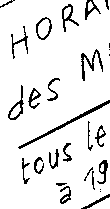 HORA
des M
tous le
à 19